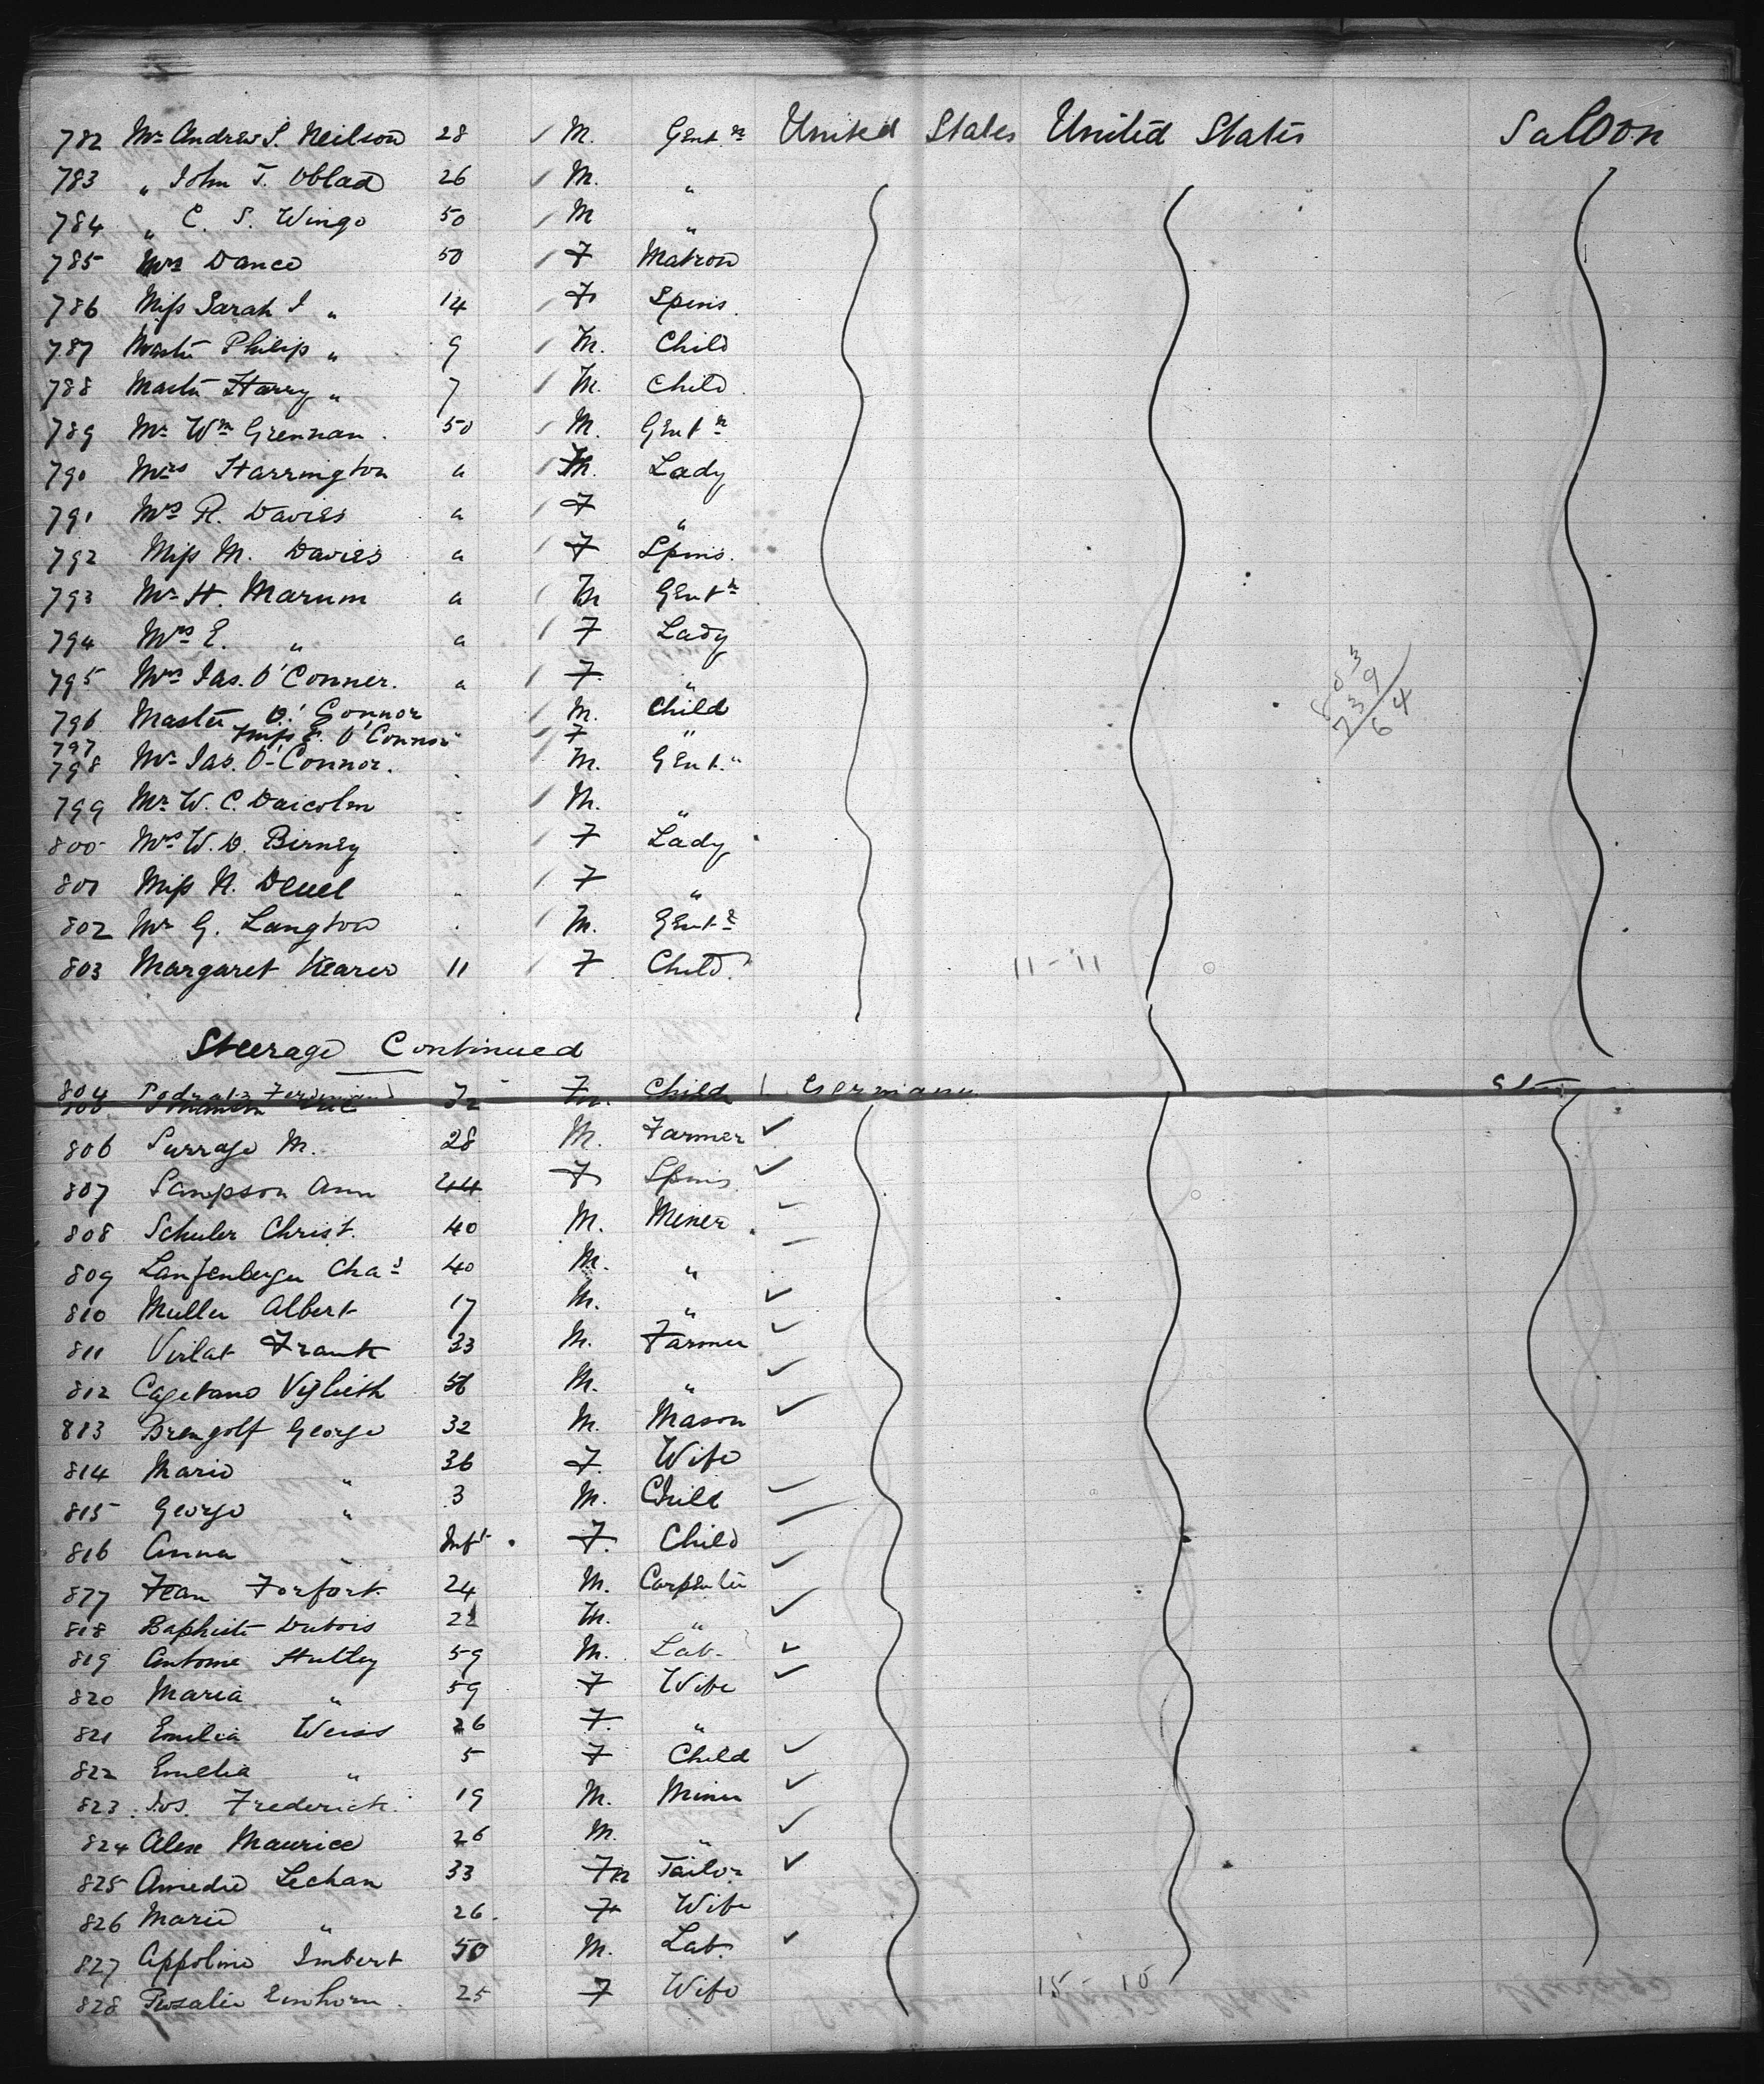 782 Mr Andrew S. Neilson 28 ✓ M. Gent.n United States United States Saloon
783 " John T. Oblad 26 ✓ M. "
784 " C. S. Wingo 50 / M "
785 Mrs Dance 50 / F Matron
786 Miss Sarah J " 14 / F Spins.
787 Master Philip " 9 / M. Child
788 Master Harry " 7 / M. Child
789 Mr Wm Grennan. 50 / M. Gentn
790 Mrs Harrington a / M. Lady
791 Mrs R. Davies a / F "
792 Miss M. Davies a / F Spins.
793 Mr H. Marum a / M Gentn
794 Mrs E. " a / F Lady
795 Mrs Jas. O'Conner. a / F "
796 Master O'Connor / M. Child
797 Miss E. O'Connor / F "
798 Mr Jas. O'Connor. / M. Gent."
799 Mr W. C. / M. "
800 Mrs W. D. Birney / F Lady
801 Miss N. Deuel / F "
802 Mr G. Langton / M. Gentn
803 Margaret 11 / F Child. 11-11
Steerage Continued
804 Child Germany
806 M. 28 M. Farmer ✓
807 Sampson Ann 44 F Spins ✓
808 Schuler Christ. 40 M. Miner
809 Chas 40 M. "
810 Muller Albert 17 M. " ✓
811 Virlat Frank 33 M. Farmer ✓
812 Cagetano M. " ✓
813 George 32 M. Mason ✓
814 Marie " 36 F. Wife
815 George " 3 M. Child
816 Anna " Inft. F. Child
817 Jean Forfort 24 M. Carpenter
818 Baptiste Dubois M. " ✓
819 Antoine Hutley 59 M. Lab. ✓
820 Maria " 59 F Wife ✓
821 Emilia Weiss 26 F. "
822 Emelia " 5 F Child ✓
823 Jos. Frederick 19 M. Miner ✓
824 Alex Maurice 26 M. " ✓
825 Amedie Lechan 33 M Tailor ✓
826 Marie " 26. F Wife
827 Appoline Imbert 50 M. Lab. ✓
828 Rosalie Einhorn. 25 F Wife 15-10